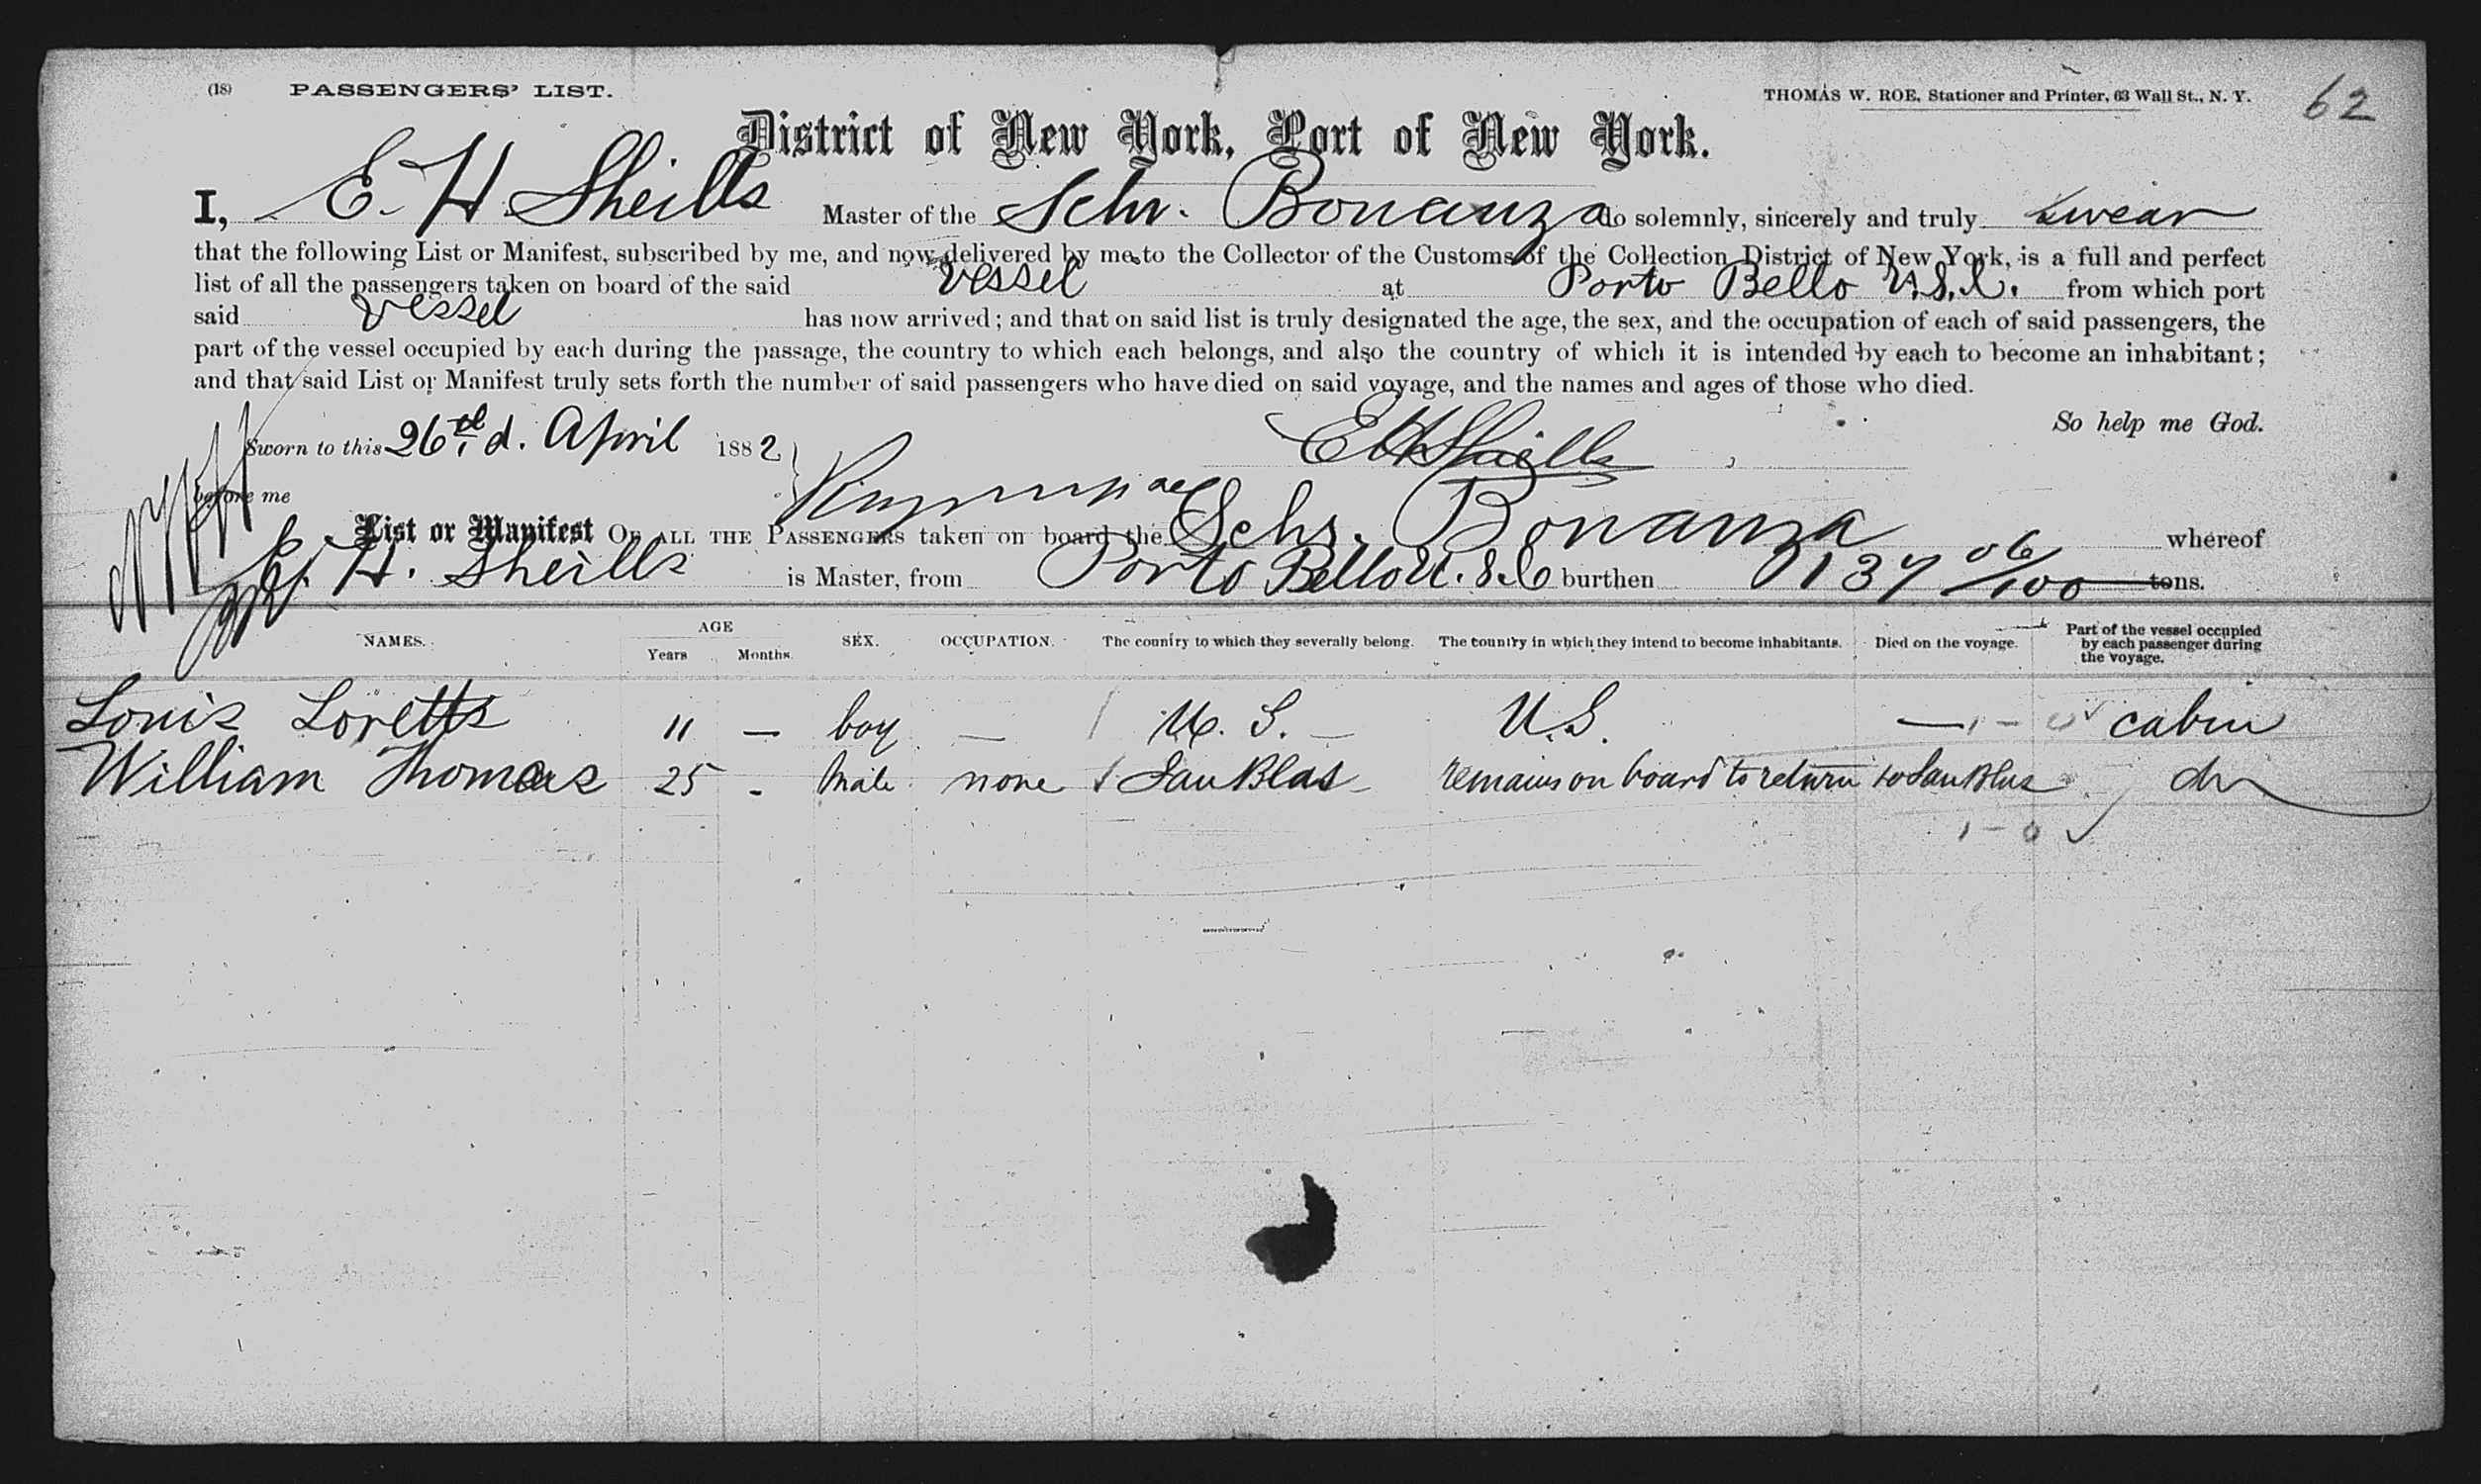 (18) PASSENGERS' LIST. THOMAS W. ROE, Stationer and Printer, 63 Wall St., N. Y. 62
District of New York, Port of New York.
I, E. H. Sheills Master of the Schr. Bonanza do solemnly, sincerely and truly swear
that the following List or Manifest, subscribed by me, and now delivered by me to the Collector of the Customs of the Collection District of New York, is a full and perfect
list of all the passengers taken on board of the said vessel at Porto Bello U.S.C. from which port
said vessel has now arrived; and that on said list is truly designated the age, the sex, and the occupation of each of said passengers, the
part of the vessel occupied by each during the passage, the country to which each belongs, and also the country of which it is intended by each to become an inhabitant;
and that said List or Manifest truly sets forth the number of said passengers who have died on said voyage, and the names and ages of those who died.
So help me God.
Sworn to this 26th d. April 1882 E H Sheills
before me
List or Manifest OF ALL THE PASSENGERS taken on board the Schr. Bonanza whereof
E. H. Sheills is Master, from Porto Bello U.S.C burthen 137 06/100 tons.
NAMES. AGE Years Months. SEX. OCCUPATION. The country to which they severally belong. The country in which they intend to become inhabitants. Died on the voyage. Part of the vessel occupied by each passenger during the voyage.
Louis Loretts 11 — boy — / U. S. — U.S. — 1 - 0 ✓ cabin
William Thomas 25 - Male none San Blas remains on board to return to San Blas do
1 - 0 ✓